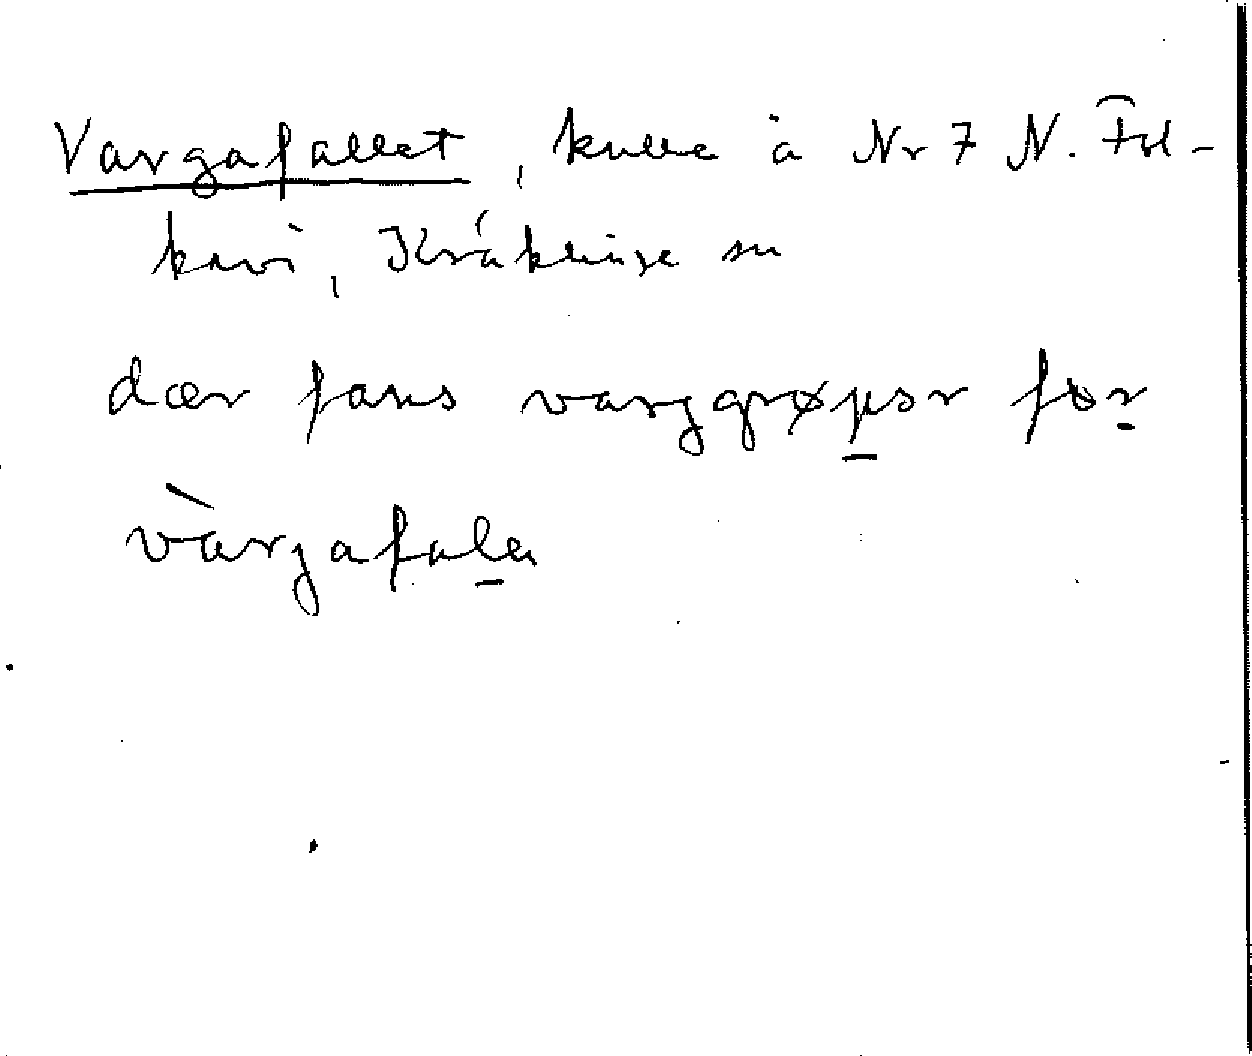 Vargafallet, kulle å Nr 7 N. Fol-
kavi, Kräklinge sn
dær fans varggrøpər fər
vàrgafalə